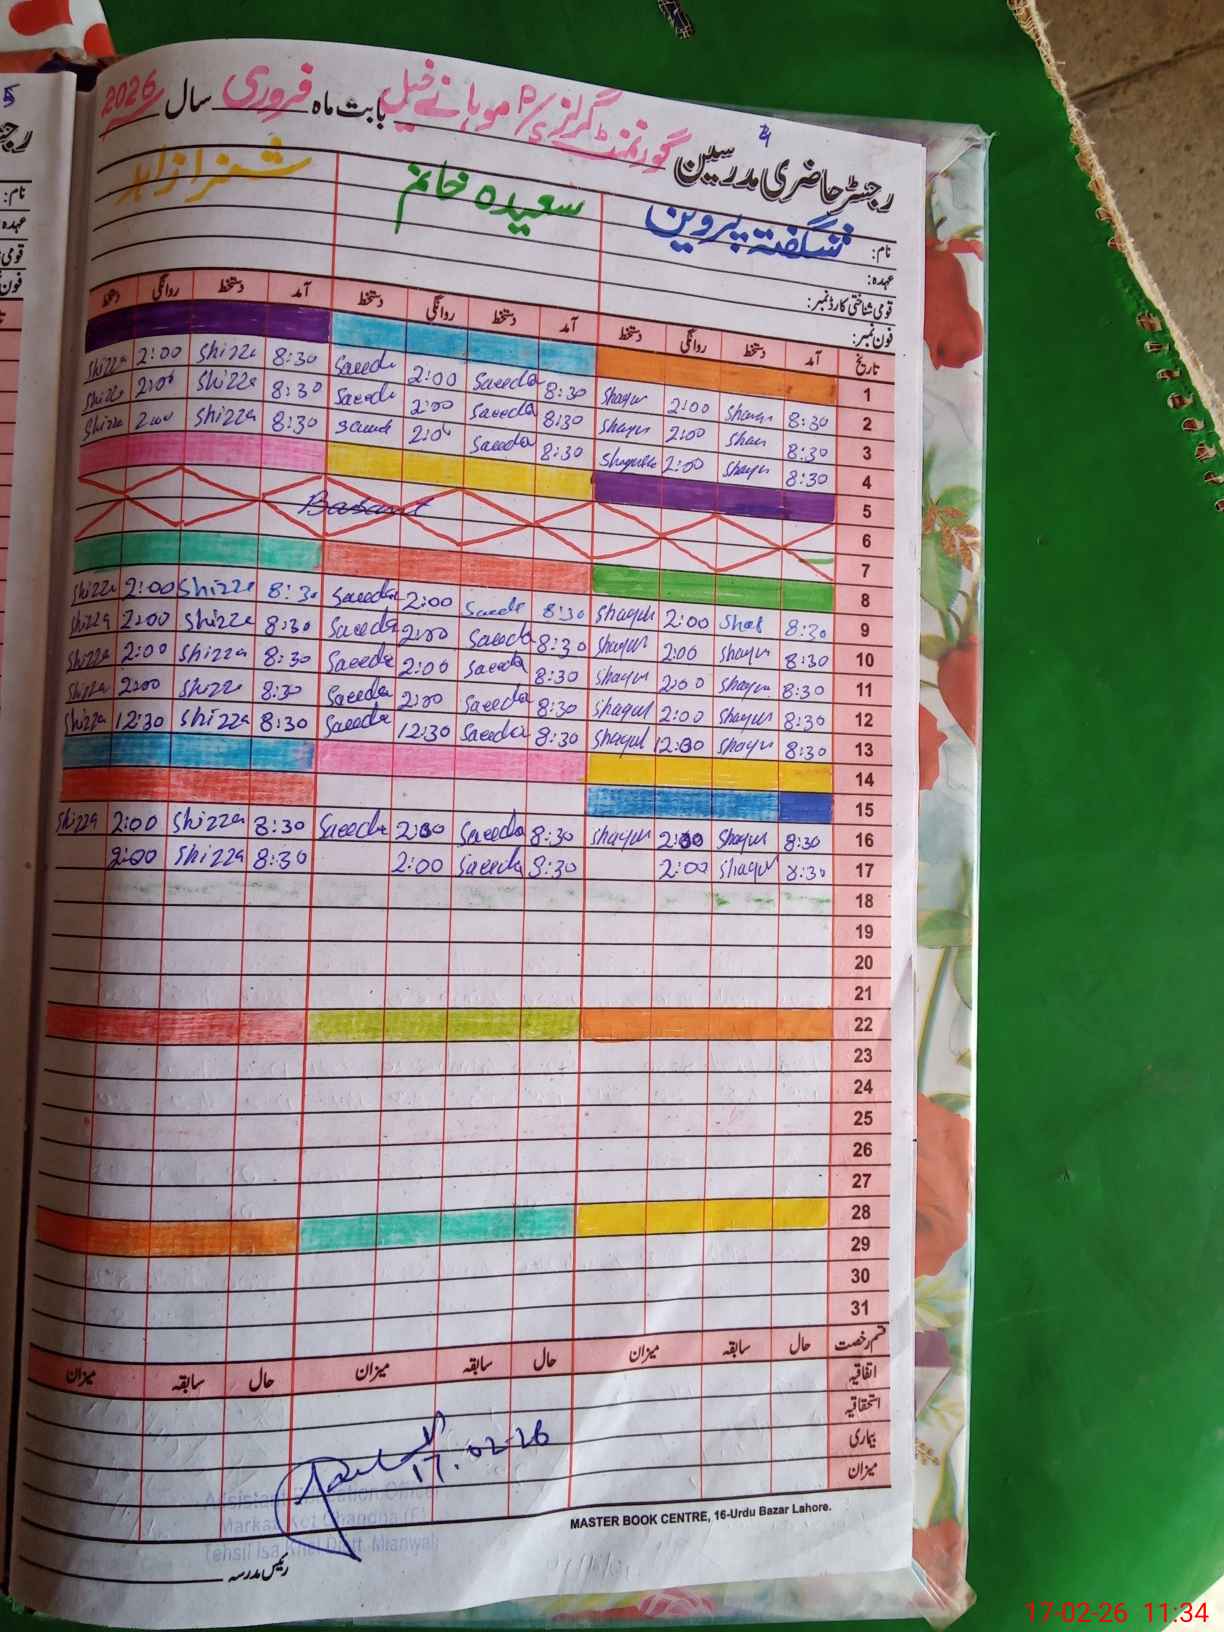 رجسٹر حاضری مدرسین گورنمنٹ گرلز P/S موہانے خیل بابت ماہ فروری سال 2026
نام: شگفتہ پروین سعیدہ خانم شمزا زاہد
عہدہ:
قومی شناختی کارڈ نمبر:
فون نمبر:
تاریخ آمد دستخط روانگی دستخط آمد دستخط روانگی دستخط آمد دستخط روانگی دستخط
1
shizza 2:00 Shizza 8:30 Saeeda 2:00 Saeeda 8:30 Shagu 2:00 Shagu 8:30 2
shizza 2:00 Shizza 8:30 Saeeda 2:00 Saeeda 8:30 Shagu 2:00 Shau 8:30 3
Shizza 2:00 Shizza 8:30 Saeeda 2:00 Saeeda 8:30 Shagu 2:00 Shagu 8:30 4
5
Basant 6
7
8
Shizza 2:00 Shizza 8:30 Saeeda 2:00 Saeeda 8:30 Shaguf 2:00 Shaf 8:30 9
Shizza 2:00 Shizza 8:30 Saeeda 2:00 Saeeda 8:30 Shaguf 2:00 Shaguf 8:30 10
Shizza 2:00 Shizza 8:30 Saeeda 2:00 Saeeda 8:30 Shaguf 2:00 Shaguf 8:30 11
Shizza 2:00 Shizza 8:30 Saeeda 2:00 Saeeda 8:30 Shaguf 2:00 Shaguf 8:30 12
Shizza 12:30 Shizza 8:30 Saeeda 12:30 Saeeda 8:30 Shaguf 12:30 Shaguf 8:30 13
14
15
Shizza 2:00 Shizza 8:30 Saeeda 2:00 Saeeda 8:30 Shaguf 2:00 Shaguf 8:30 16
2:00 Shizza 8:30 2:00 Saeeda 8:30 2:00 Shaguf 8:30 17
18
19
20
21
22
23
24
25
26
27
28
29
30
31
قسم رخصت حال سابقہ میزان حال سابقہ میزان حال سابقہ میزان
اتفاقیہ
استحقاقیہ
بیماری
میزان
17.02.26
Assistant Education Officer
Markaz Kot Chandna (F)
Tehsil Isa Khel Distt. Mianwali
رئیس مدرسہ
MASTER BOOK CENTRE, 16-Urdu Bazar Lahore.
17-02-26 11:34